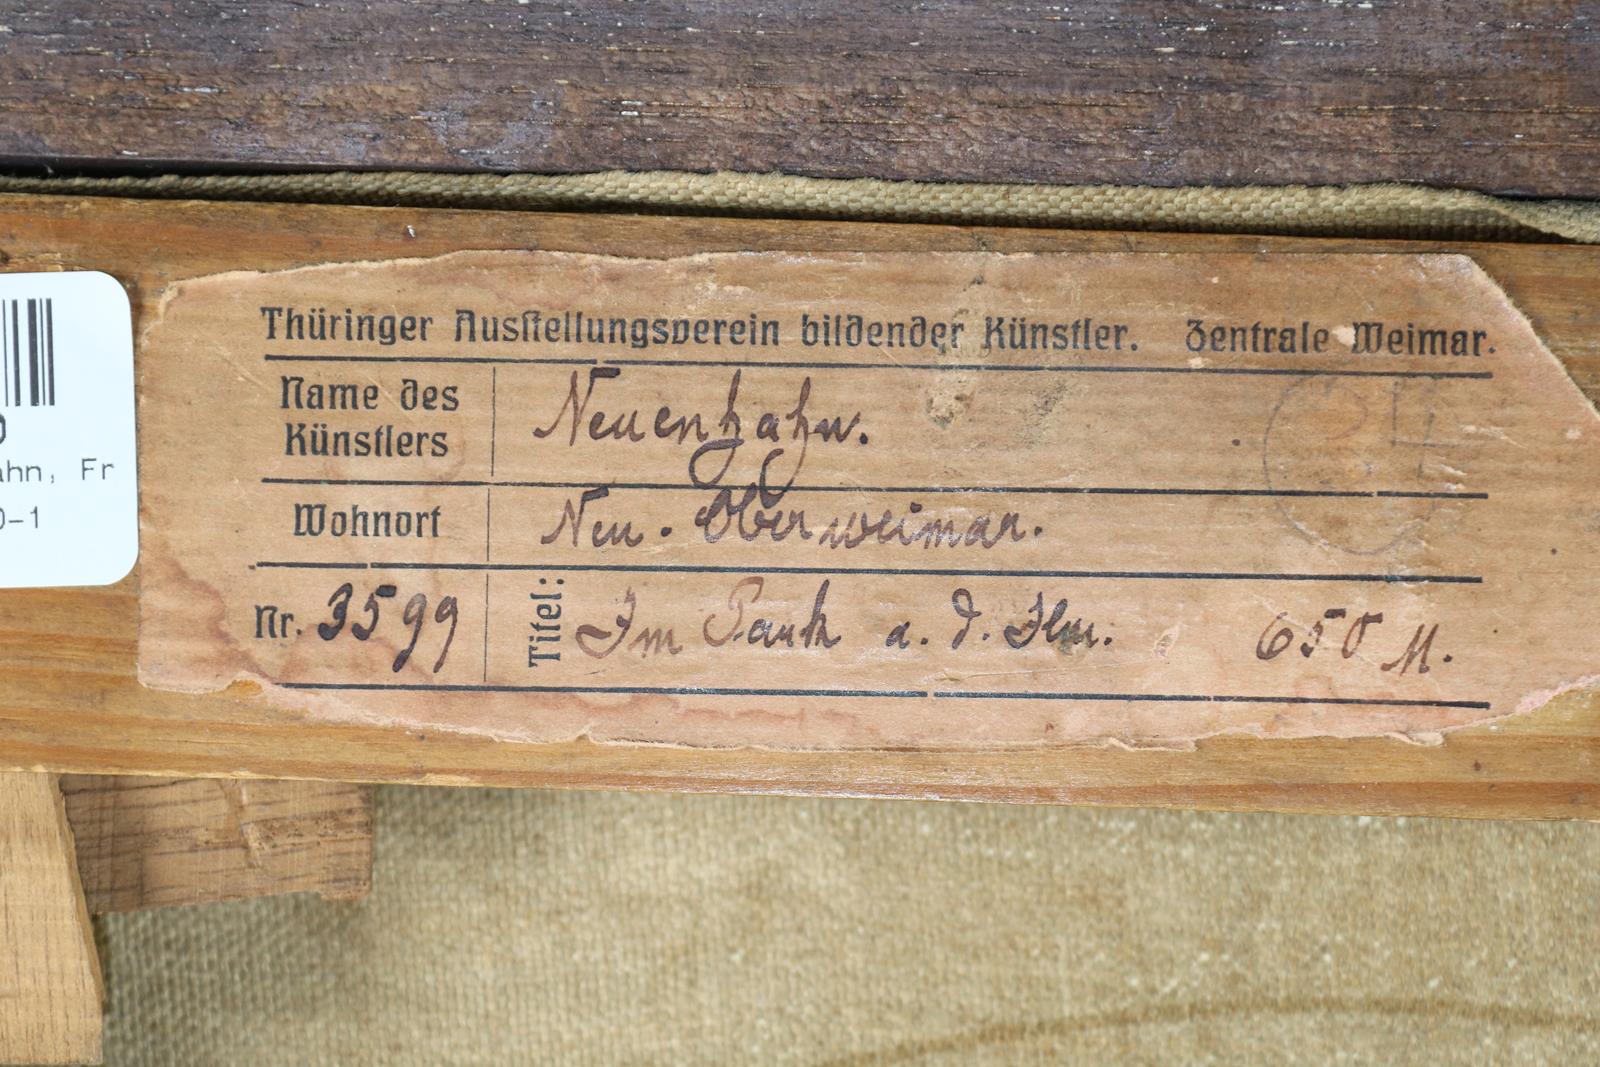 Thüringer Ausstellungsverein bildender Künstler. Zentrale Weimar.
Name des
Künstlers
Neuenhahn.
Wohnort
Neu. Oberweimar.
Nr. 3599
Titel: Im Park a. d. Ilm. 650 M.
ahn, Fr
0-1